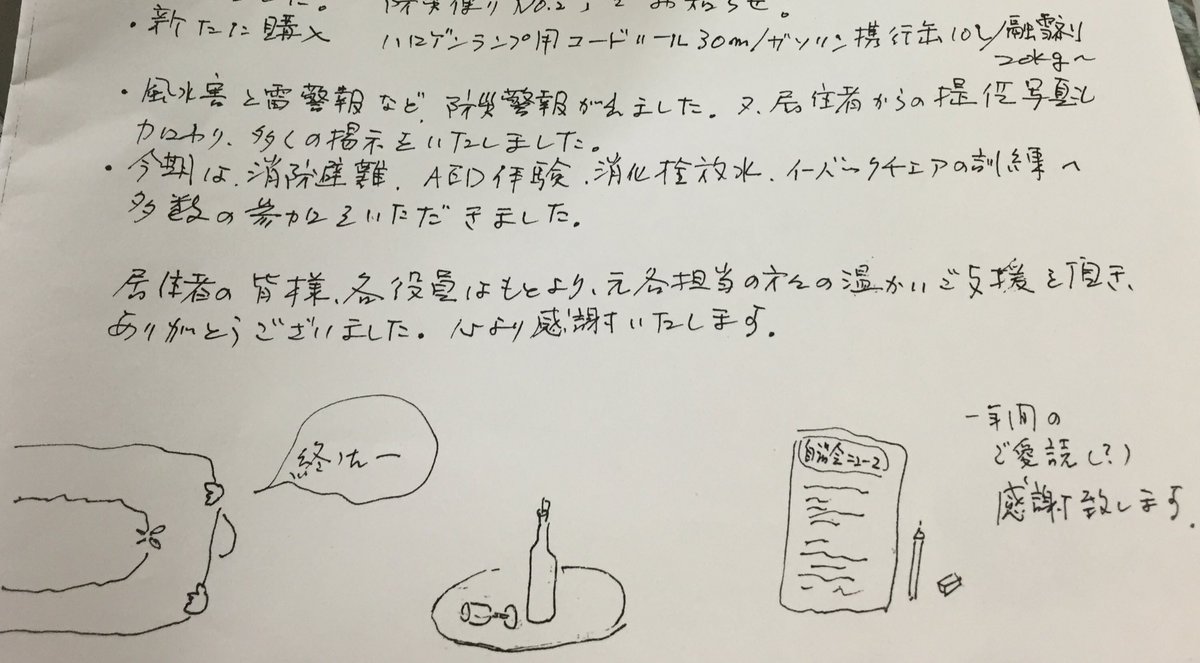 防災便り No.2, でお知らせ。
・新たに購入 ハロゲンランプ用コードリール30m/ガソリン携行缶10L/融雪剤
20kg〜
・風水害と雷警報など、防災警報が出ました。又、居住者からの提供写真も
加わり、多くの掲示をいたしました。
・今期は、消防避難、AED体験、消化栓放水、イーバックチェアの訓練へ
多数の参加をいただきました。
居住者の皆様、各役員はもとより、元各担当の方々の温かいご支援を頂き、
ありがとうございました。心より感謝いたします。
終けたー
自治会ニュース
一年間の
ご愛読(?)
感謝致します。